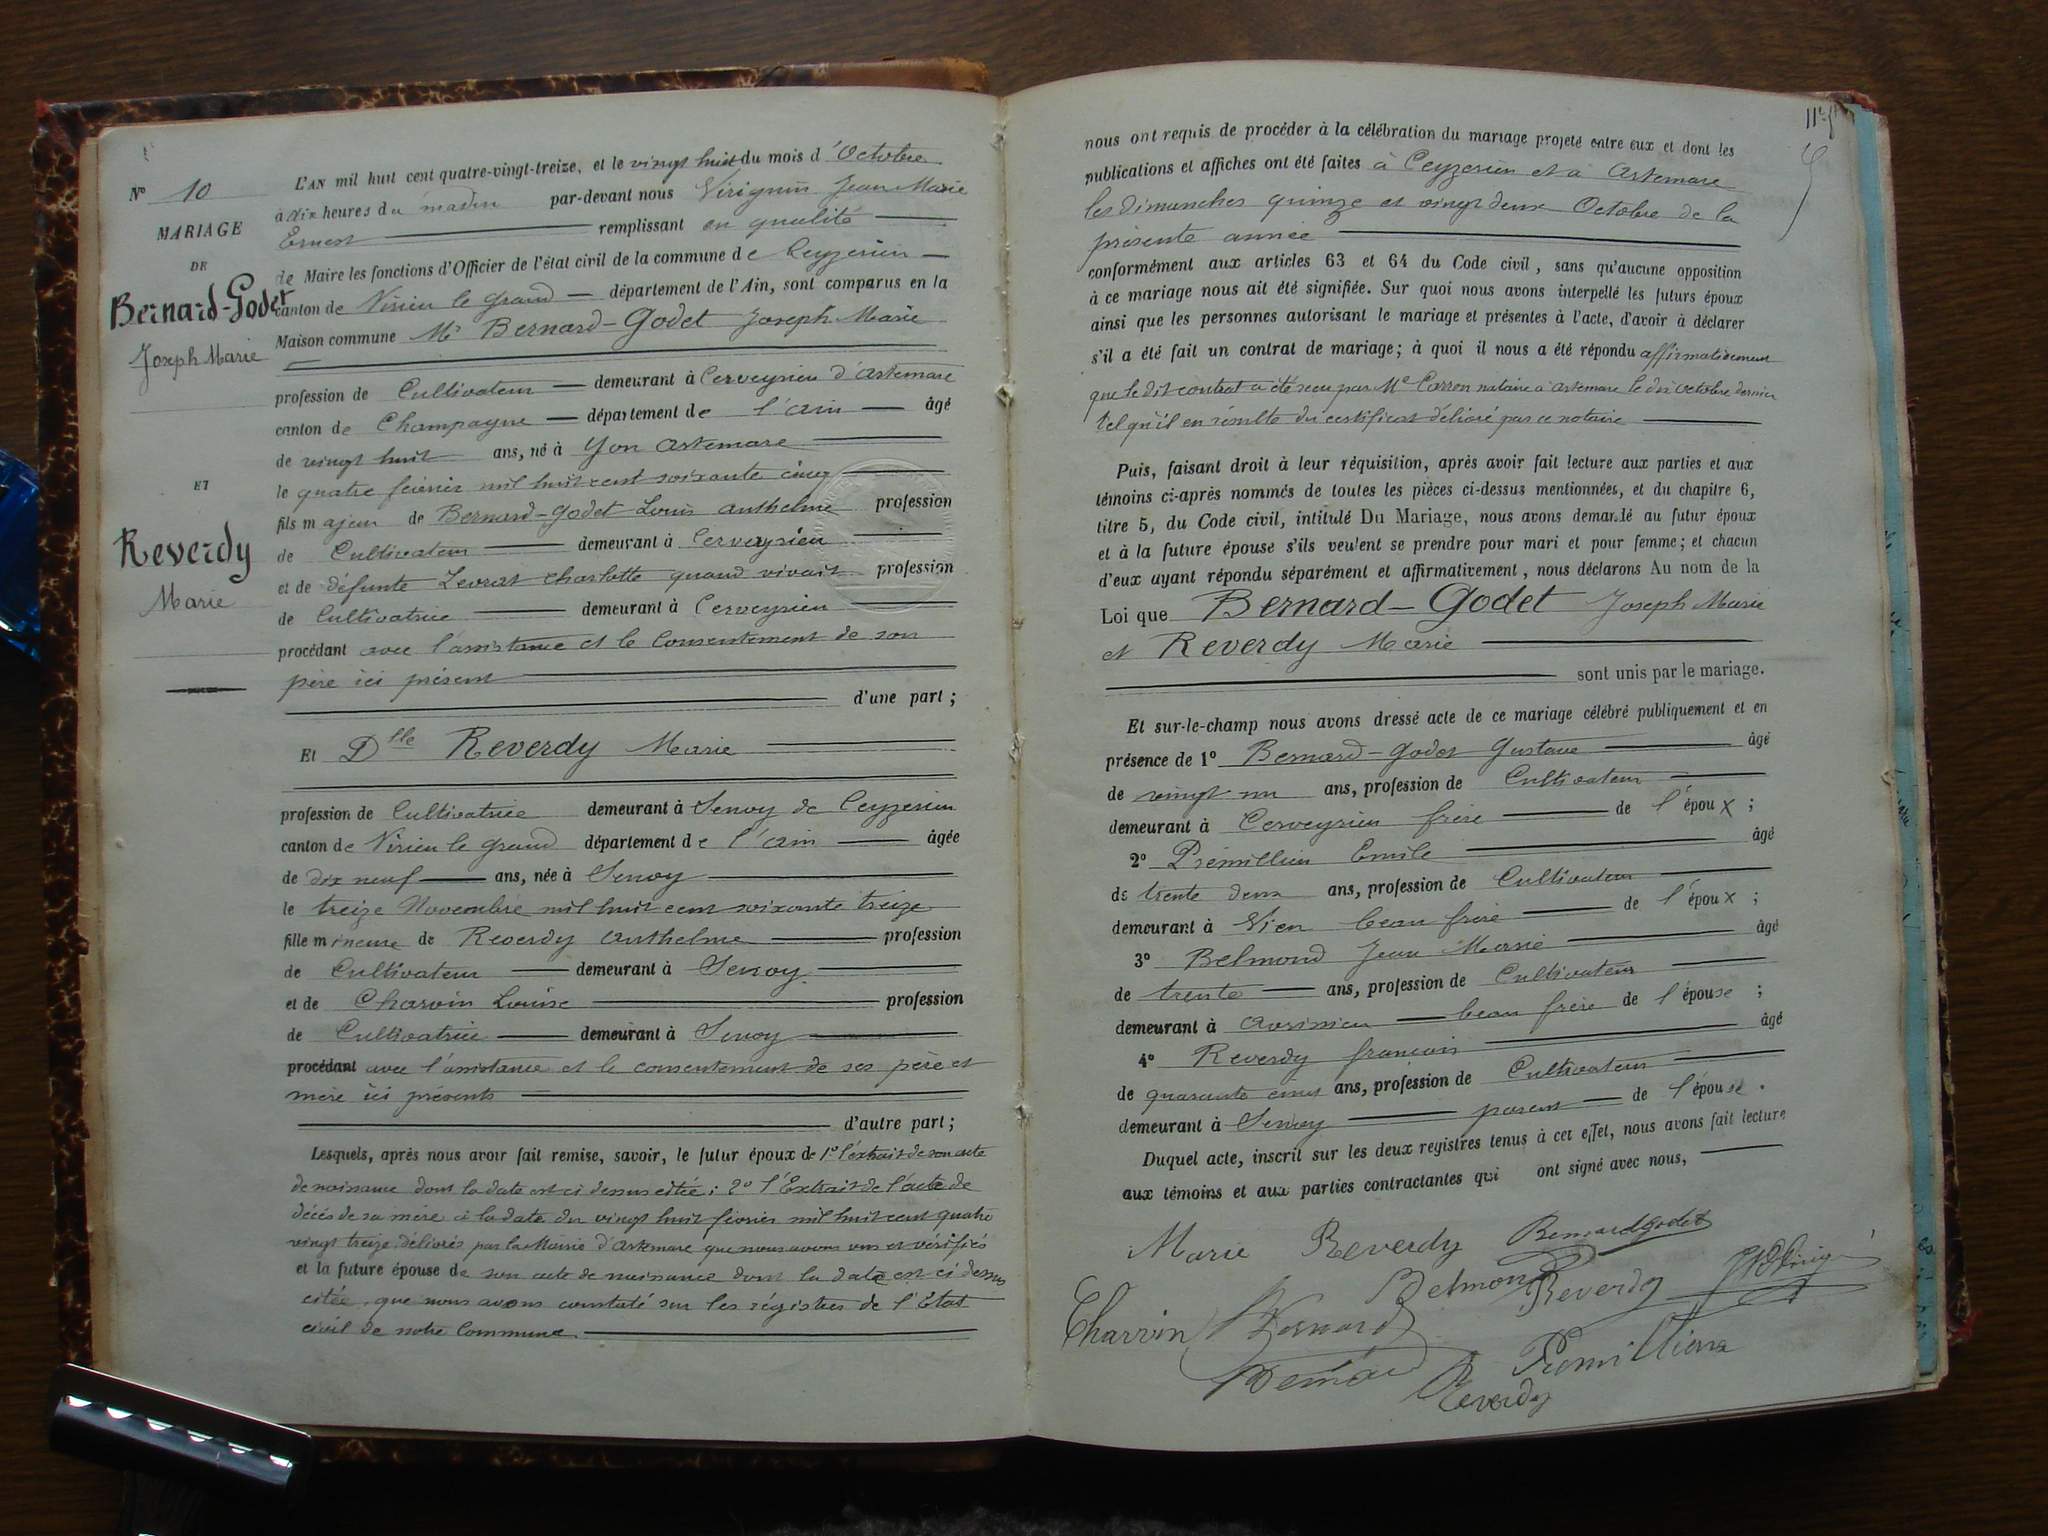 N° 10
MARIAGE
DE
Bernard-Godet
Joseph Marie
ET
Reverdy
Marie
L'AN mil huit cent quatre-vingt-treize, et le vingt huit du mois d'Octobre
à dix heures du matin par-devant nous Virignin Jean Marie
Ernest remplissant en qualité
de Maire les fonctions d'Officier de l'état civil de la commune de Ceyzerieu
canton de Virieu le grand département de l'Ain, sont comparus en la
Maison commune Mr Bernard-Godet Joseph Marie
profession de Cultivateur demeurant à Cerveyrieu d'artemare
canton de Champagne département de l'ain âgé
de vingt huit ans, né à Yon artemare
le quatre février mil huit cent soixante cinq
fils majeur de Bernard-Godet Louis anthelme profession
de Cultivateur demeurant à Cerveyrieu
et de défunte Levrat charlotte quand vivait profession
de Cultivatrice demeurant à Cerveyrieu
procédant avec l'assistance et le Consentement de son
père ici présent
d'une part ;
Et Dlle Reverdy Marie
profession de Cultivatrice demeurant à Senoy de Ceyzerieu
canton de Virieu le grand département de l'ain âgée
de dix neuf ans, née à Senoy
le treize Novembre mil huit cent soixante treize
fille mineure de Reverdy anthelme profession
de Cultivateur demeurant à Senoy
et de Charvin Louise profession
de Cultivatrice demeurant à Senoy
procédant avec l'assistance et le consentement de ses père et
mère ici présents
d'autre part ;
Lesquels, après nous avoir fait remise, savoir, le futur époux de 1° l'extrait de son acte
de naissance dont la date est ci dessus citée ; 2° l'Extrait de l'acte de
décès de sa mère à la date du vingt huit février mil huit cent quatre
vingt treize délivrés par la Mairie d'artemare que nous avons vus et vérifiés
et la future épouse de son acte de naissance dont la date est ci dessus
citée, que nous avons constaté sur les régistres de l'Etat
civil de notre Commune
nous ont requis de procéder à la célébration du mariage projeté entre eux et dont les
publications et affiches ont été faites à Ceyzerieu et à Artemare
les dimanches quinze et vingt deux Octobre de la
présente année
conformément aux articles 63 et 64 du Code civil, sans qu'aucune opposition
à ce mariage nous ait été signifiée. Sur quoi nous avons interpellé les futurs époux
ainsi que les personnes autorisant le mariage et présentes à l'acte, d'avoir à déclarer
s'il a été fait un contrat de mariage ; à quoi il nous a été répondu affirmativement
que le dit contrat a été reçu par Me Carron notaire à artemare le dix octobre dernier
tel qu'il en résulte du certificat délivré par ce notaire
Puis, faisant droit à leur réquisition, après avoir fait lecture aux parties et aux
témoins ci-après nommés de toutes les pièces ci-dessus mentionnées, et du chapitre 6,
titre 5, du Code civil, intitulé Du Mariage, nous avons demandé au futur époux
et à la future épouse s'ils veulent se prendre pour mari et pour femme ; et chacun
d'eux ayant répondu séparément et affirmativement, nous déclarons Au nom de la
Loi que Bernard-Godet Joseph Marie
et Reverdy Marie
sont unis par le mariage.
Et sur-le-champ nous avons dressé acte de ce mariage célébré publiquement et en
présence de 1° Bernard-Godet Gustave âgé
de vingt un ans, profession de Cultivateur
demeurant à Cerveyrieu frère de l'époux ;
2° Prémillieu Emile âgé
de trente deux ans, profession de Cultivateur
demeurant à Vieu beau frère de l'époux ;
3° Belmond Jean Marie âgé
de trente ans, profession de Cultivateur
demeurant à avrissieu beau frère de l'épouse ;
4° Reverdy françois âgé
de quarante cinq ans, profession de Cultivateur
demeurant à Senoy parent de l'épouse.
Duquel acte, inscrit sur les deux registres tenus à cet effet, nous avons fait lecture
aux témoins et aux parties contractantes qui ont signé avec nous,
Marie Reverdy Bernardgodet
Belmond Reverdy
Charvin Bernard
Reverdy